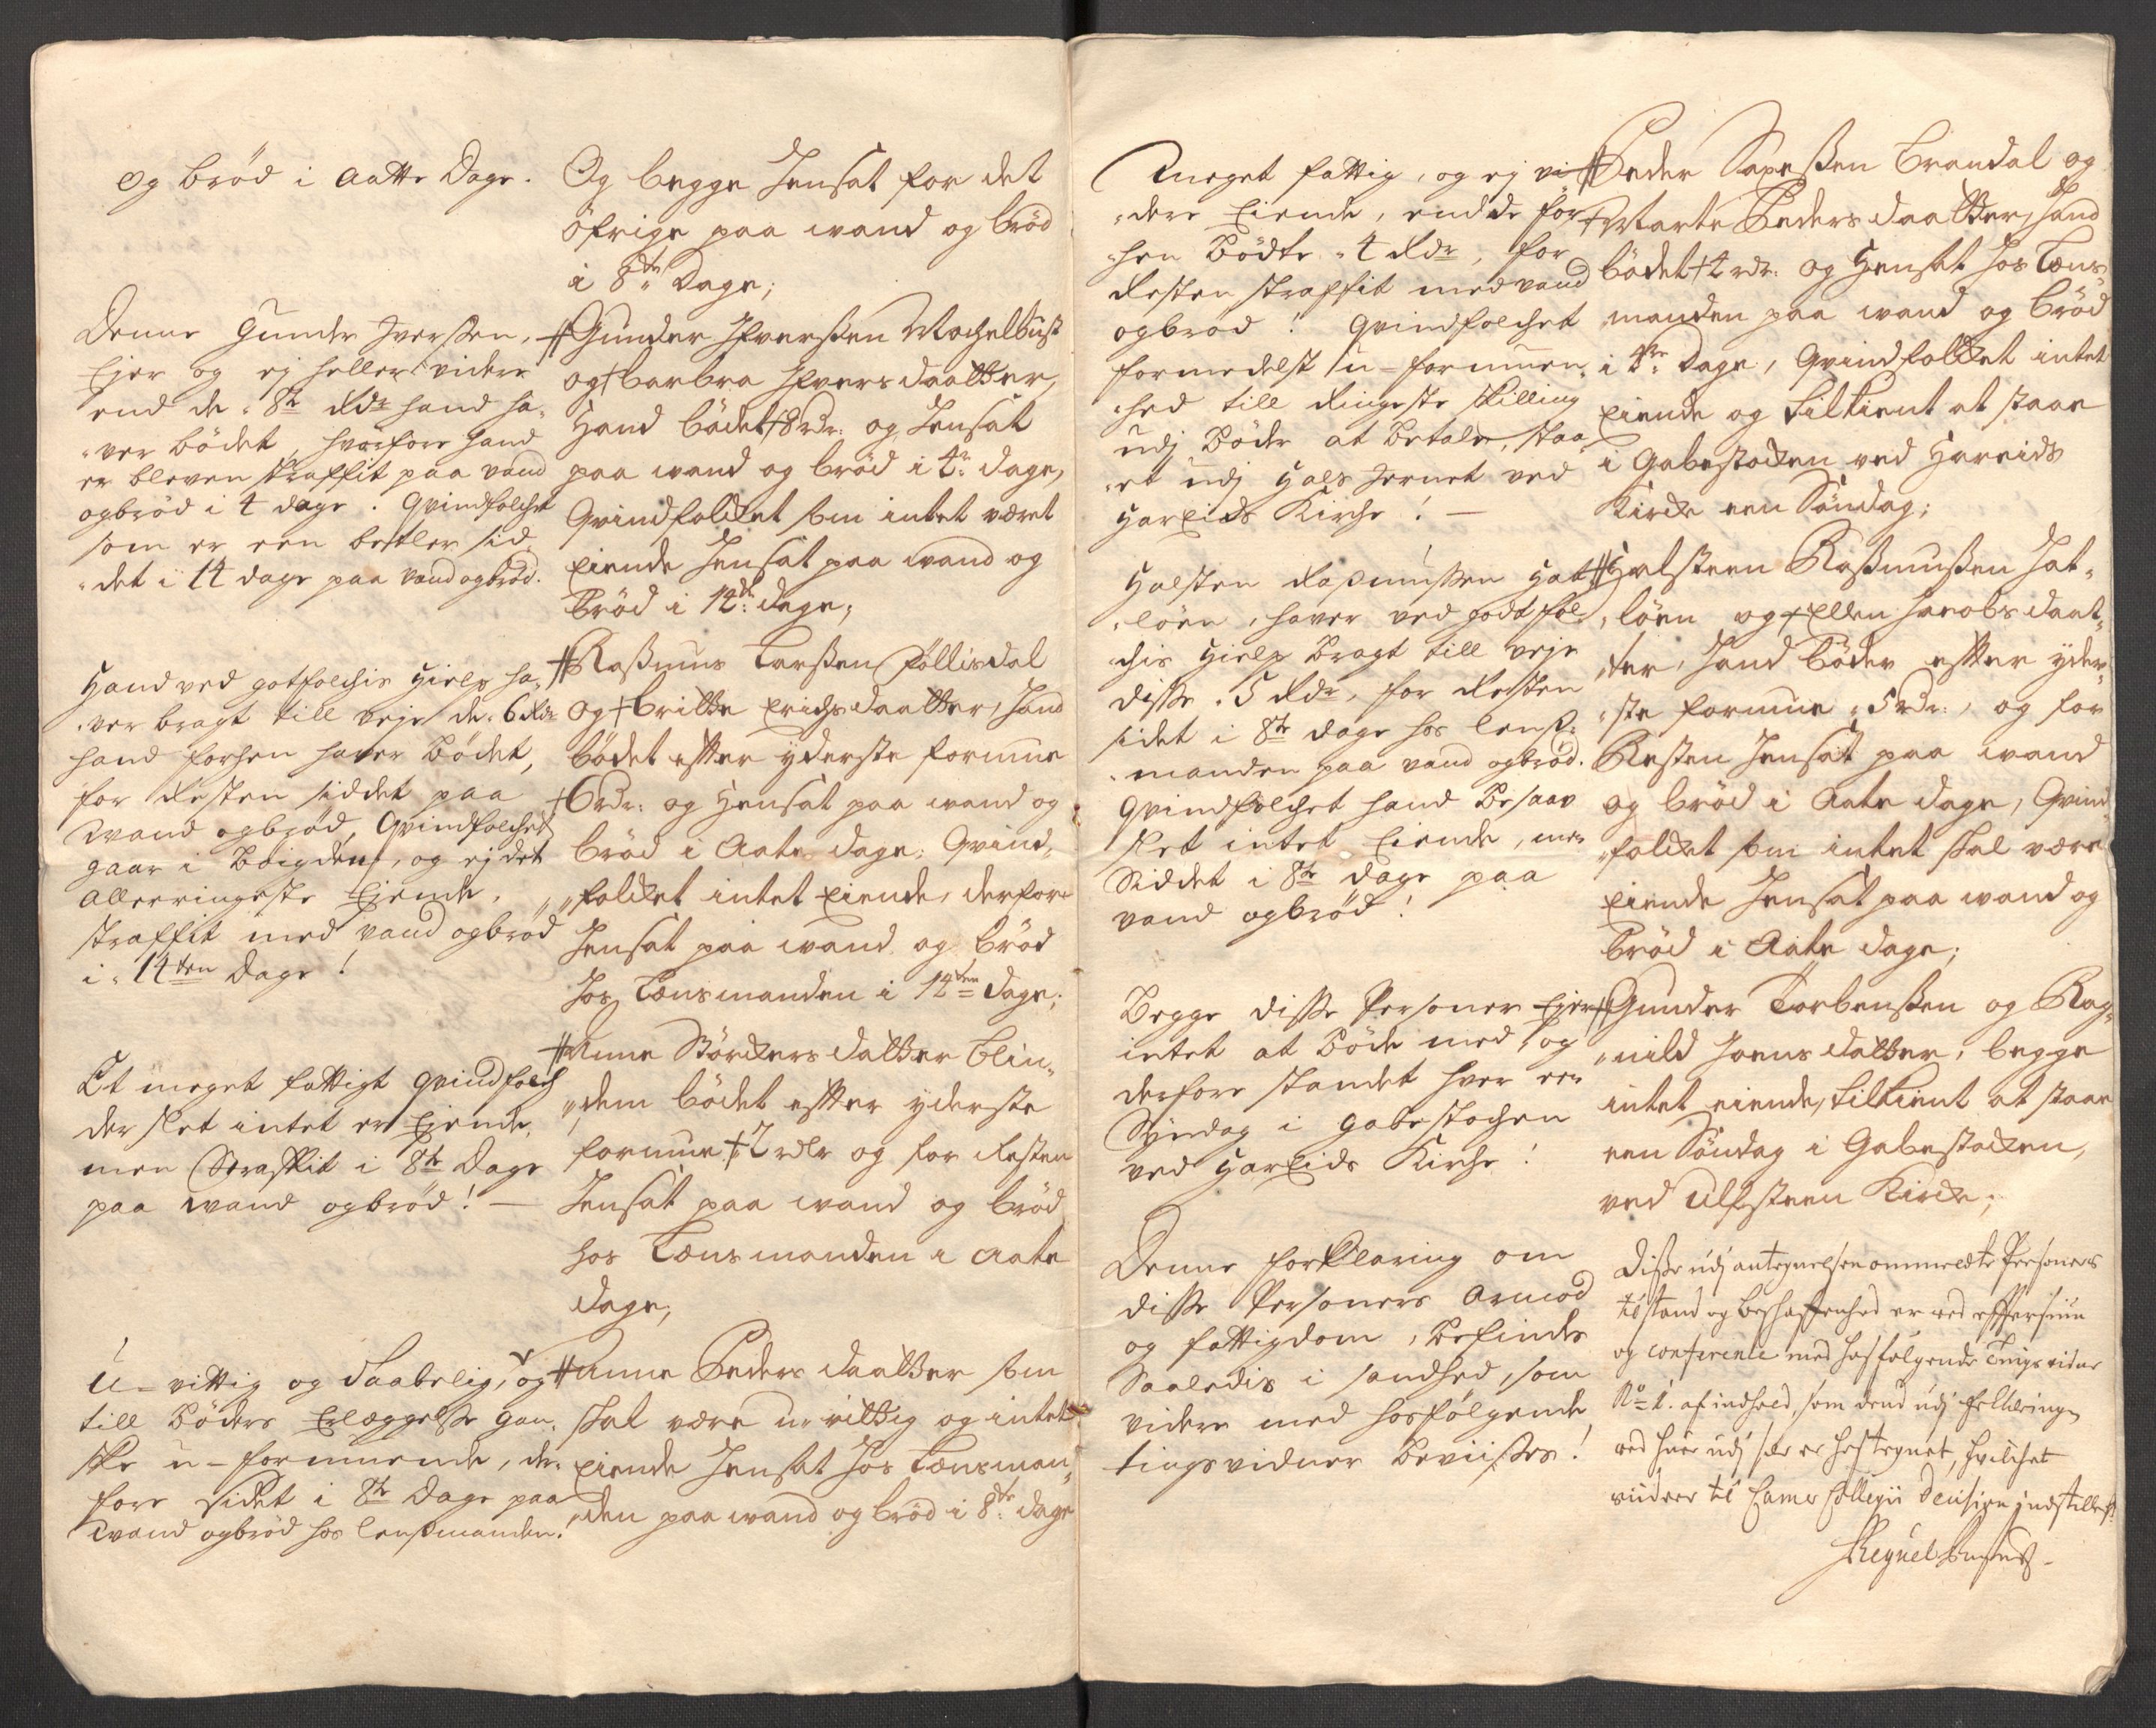 og brød i aatte Dage.
Denne Gunder Iverssen,
Ejer og ej heller videre
end de 8te Rdr hand ha-
ver bödet, hvorfore hand
er bleven straffit paa vand
og brød i 4 dage. Qvindfolchet
som er een betler sid-
det i 14 dage paa vand og brød.
Hand ved gotfolchis hielp ha-
ver bragt till veje de 6 Rdr
hand forhen haver bödet,
for Resten siddet paa
vand og brød, Qvindfolchet
gaar i bøigden, og ej det
allerringeste Ejende,
straffit med vand og brød
i 14ten Dage!
Et meget fattigt qvindfolch
der slet intet er Ejende,
men Straffit i 8te Dage
paa vand og brød! —
U-vittig og Taabelig, og
till Böders Erlæggelse gan-
ske u-formuende, der-
fore Sidet i 8te Dage paa
vand og brød hos lensmanden.
Og begge hensat for det
öfrige paa wand og brød
i 8te Dage;
Gunder Ifverssen Mochelbust
og barbra Ifversdaatter,
Hand bödet 8 rdr: og hensat
paa wand og brød i 4re dage,
Qvindfolket som intet været
Eiende hensat paa wand og
Brød i 14de dage;
Rassmus Larssen Föllisdal
og britte Erichsdaatter, Hand
bödet effter yderste formue
6 rdr: og hensat paa wand og
brød i Aate dage, Qvind-
folket intet Eiende, derfore
hensat paa wand og brød
hos Lensmanden i 14ten dage;
Anne Störkersdatter Blin-
dem bödet effter yderste
formue 7 rdlr og for Resten
hensat paa wand og brød
hos Lensmanden i aate
dage;
Anne Pedersdaatter som
skal være u-vittig og intet
Eiende hensat hos Lensman-
den paa wand og brød i 8te dage
Meget fattig, og ej vi-
dere Eiende, end de for-
hen Bödte 4 Rdr, for
Resten straffit med vand
og brød! Qvindfolchet
formedelst u-formuen-
hed till Ringeste skilling
udj Böder at betale, staa-
et udj Hals Jernet ved
Hareids Kirche! —
Halsten Rasmussen Hat-
löen, haver ved godt fol-
chis hielp bragt till veje
disse 5 Rdr, for Resten
sidet i 8te dage hos lens-
manden paa vand og brød.
Qvindfolchet hand besaav
slet intet Eiende, men
Siddet i 8te dage paa
vand og brød!
Begge disse Personer Ejer
intet at Böde med, og
derfore standet hver een
Syndag i gabestochen
ved Hareids Kirche!
Denne forklaring om
disse Personers Armod
og fattigdom, befindes
Saaledis i sandhed, som
videre med hosfölgende
tingsvidner beviises!
Peder Saressen Brandal og
Marte Pedersdaatter, hand
bödet 4 rdr: og hensat hos Lens-
manden paa wand og brød
i 4re dage, Qvindfolket intet
Eiende og tilkient at staae
i Gabestocken ved Hareids
Kircke een Söndag;
Halsteen Rassmussen Hat-
löen og Ellen Jacobsdaat-
ter, hand böder effter yder-
ste formue 5 rdr:, og for
Resten hensat paa wand
og brød i Aate dage, Qvind-
folket som intet skal være
Eiende hensat paa wand og
brød i Aate dage;
Gunder Torbenssen og Rag-
nild Joensdatter, begge
intet eiende, tilkient at staae
een Söndag i Gabestocken,
ved Ulfsteen Kircke;
Disse udj antegnelsen ommeldte Persohners
tilstand og beskaffenhed er ved effersiun
og conference med hosfølgende Tingsvidne
No 1. af indhold, som dend udj forklaring
ved huer udj sær er hostegnet, hvilchet
viidere til Camer Collegii Decision indstilles